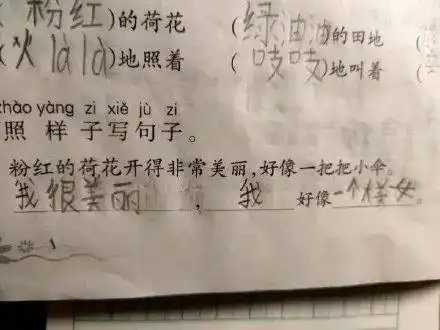 粉红)的荷花 (绿油油的田地 (
(火là là)地照着 (吱吱)地叫着 (
zhào yàng zi xiě jù zi
照样子写句子。
粉红的荷花开得非常美丽,好像一把把小伞。
我很美丽,我好像一个样女。